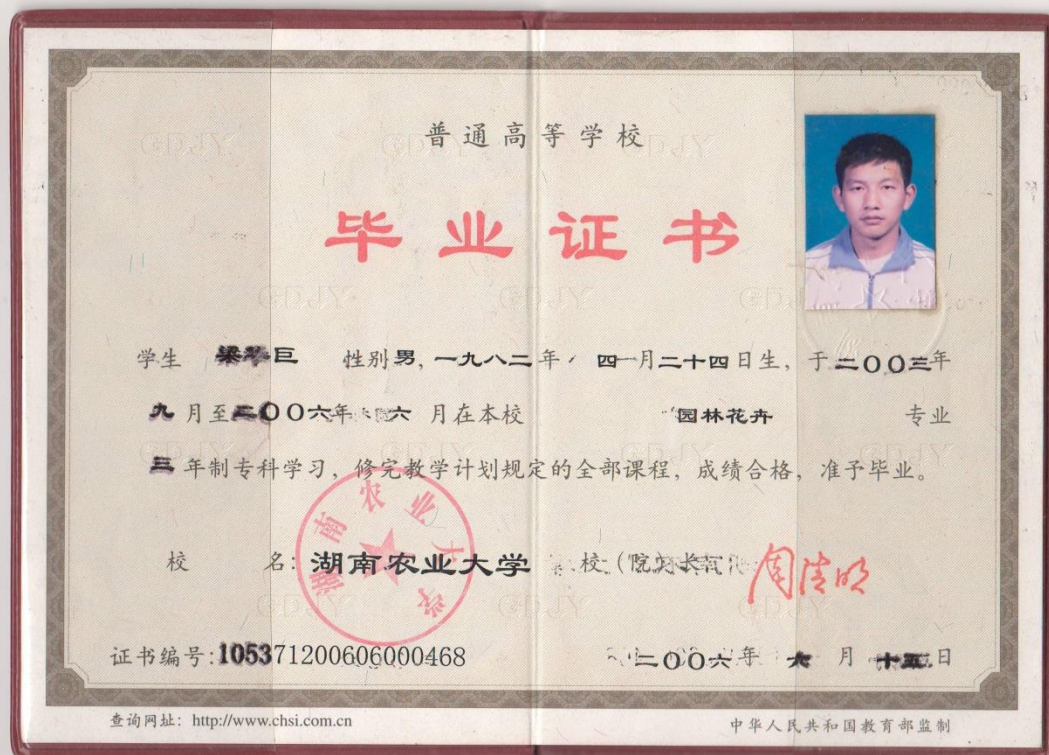 普通高等学校
毕业证书
学生 梁 巨 性别男，一九八二年 四月二十四日生，于二〇〇三年
九月至二〇〇六年六月在本校 园林花卉 专业
三年制专科学习，修完教学计划规定的全部课程，成绩合格，准予毕业。
校 名：湖南农业大学 校（院）长：周清明
湖南农业大学
证书编号：105371200606000468 二〇〇六年 六月十五日
查询网址：http://www.chsi.com.cn 中华人民共和国教育部监制
GDJY GDJY
GDJY GDJY GDJY
GDJY GDJY